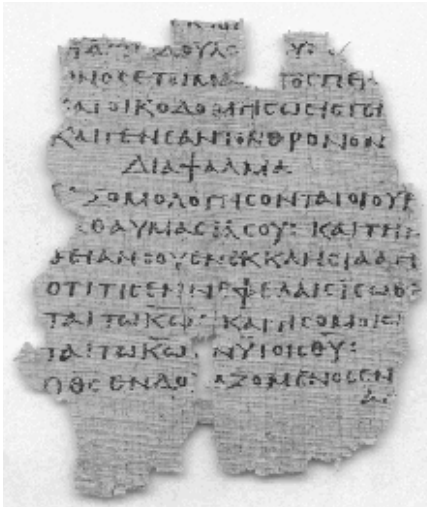 ΔΟΥΛΩ
ΝΟϹΕΤΟΙΜΑ ΤΟϹΠΕ
ΚΑΙΟΙΚΟΔΟΜΗϹΩ ΕΙϹΓΕ
ΚΑΙΓΕΝΕΑΝΤΟΝΘΡΟΝΟΝ
ΔΙΑΨΑΛΜΑ
ΟΜΟΛΟΓΗϹΟΝΤΑΙΟΙΟΥΡ
ΘΑΥΜΑϹΙΑϹΟΥ: ΚΑΙΤΗΝ
ΘΕΙΑΝϹΟΥΕΝΕΚΚΛΗϹΙΑΑΓ
ΟΤΙΤΙϹΕΝΝΕΦΕΛΑΙϹΙϹΩΘΗ
ΤΑΙΤΩΚΩ: ΚΑΙΤΙϹΟΜΟΙΩ
ΤΑΙΤΩΚΩ ΝΥΙΟΙϹΘΥ:
ΟΘϹΕΝΔΟ ΑΖΟΜΕΝΟϹΕΝ